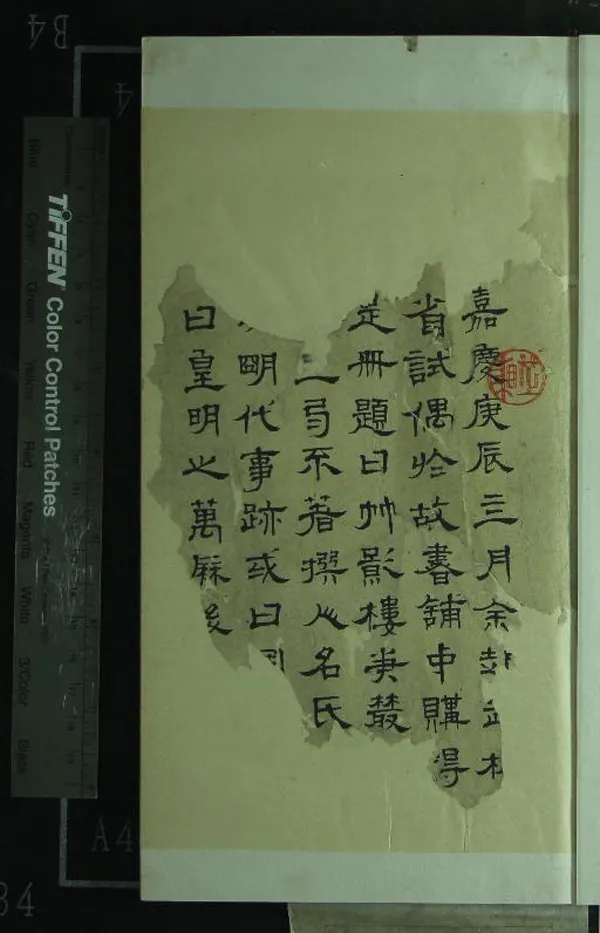 嘉慶庚辰三月余赴
省試偶於故書舖中購得
是冊題曰竹影樓叢
二弓不著撰人名氏
明代事跡或曰
曰皇明之萬厤後
TIFFEN Color Control Patches
Blue Cyan Green Yellow Red Magenta White 3/Color Black
B4
4
A4
34